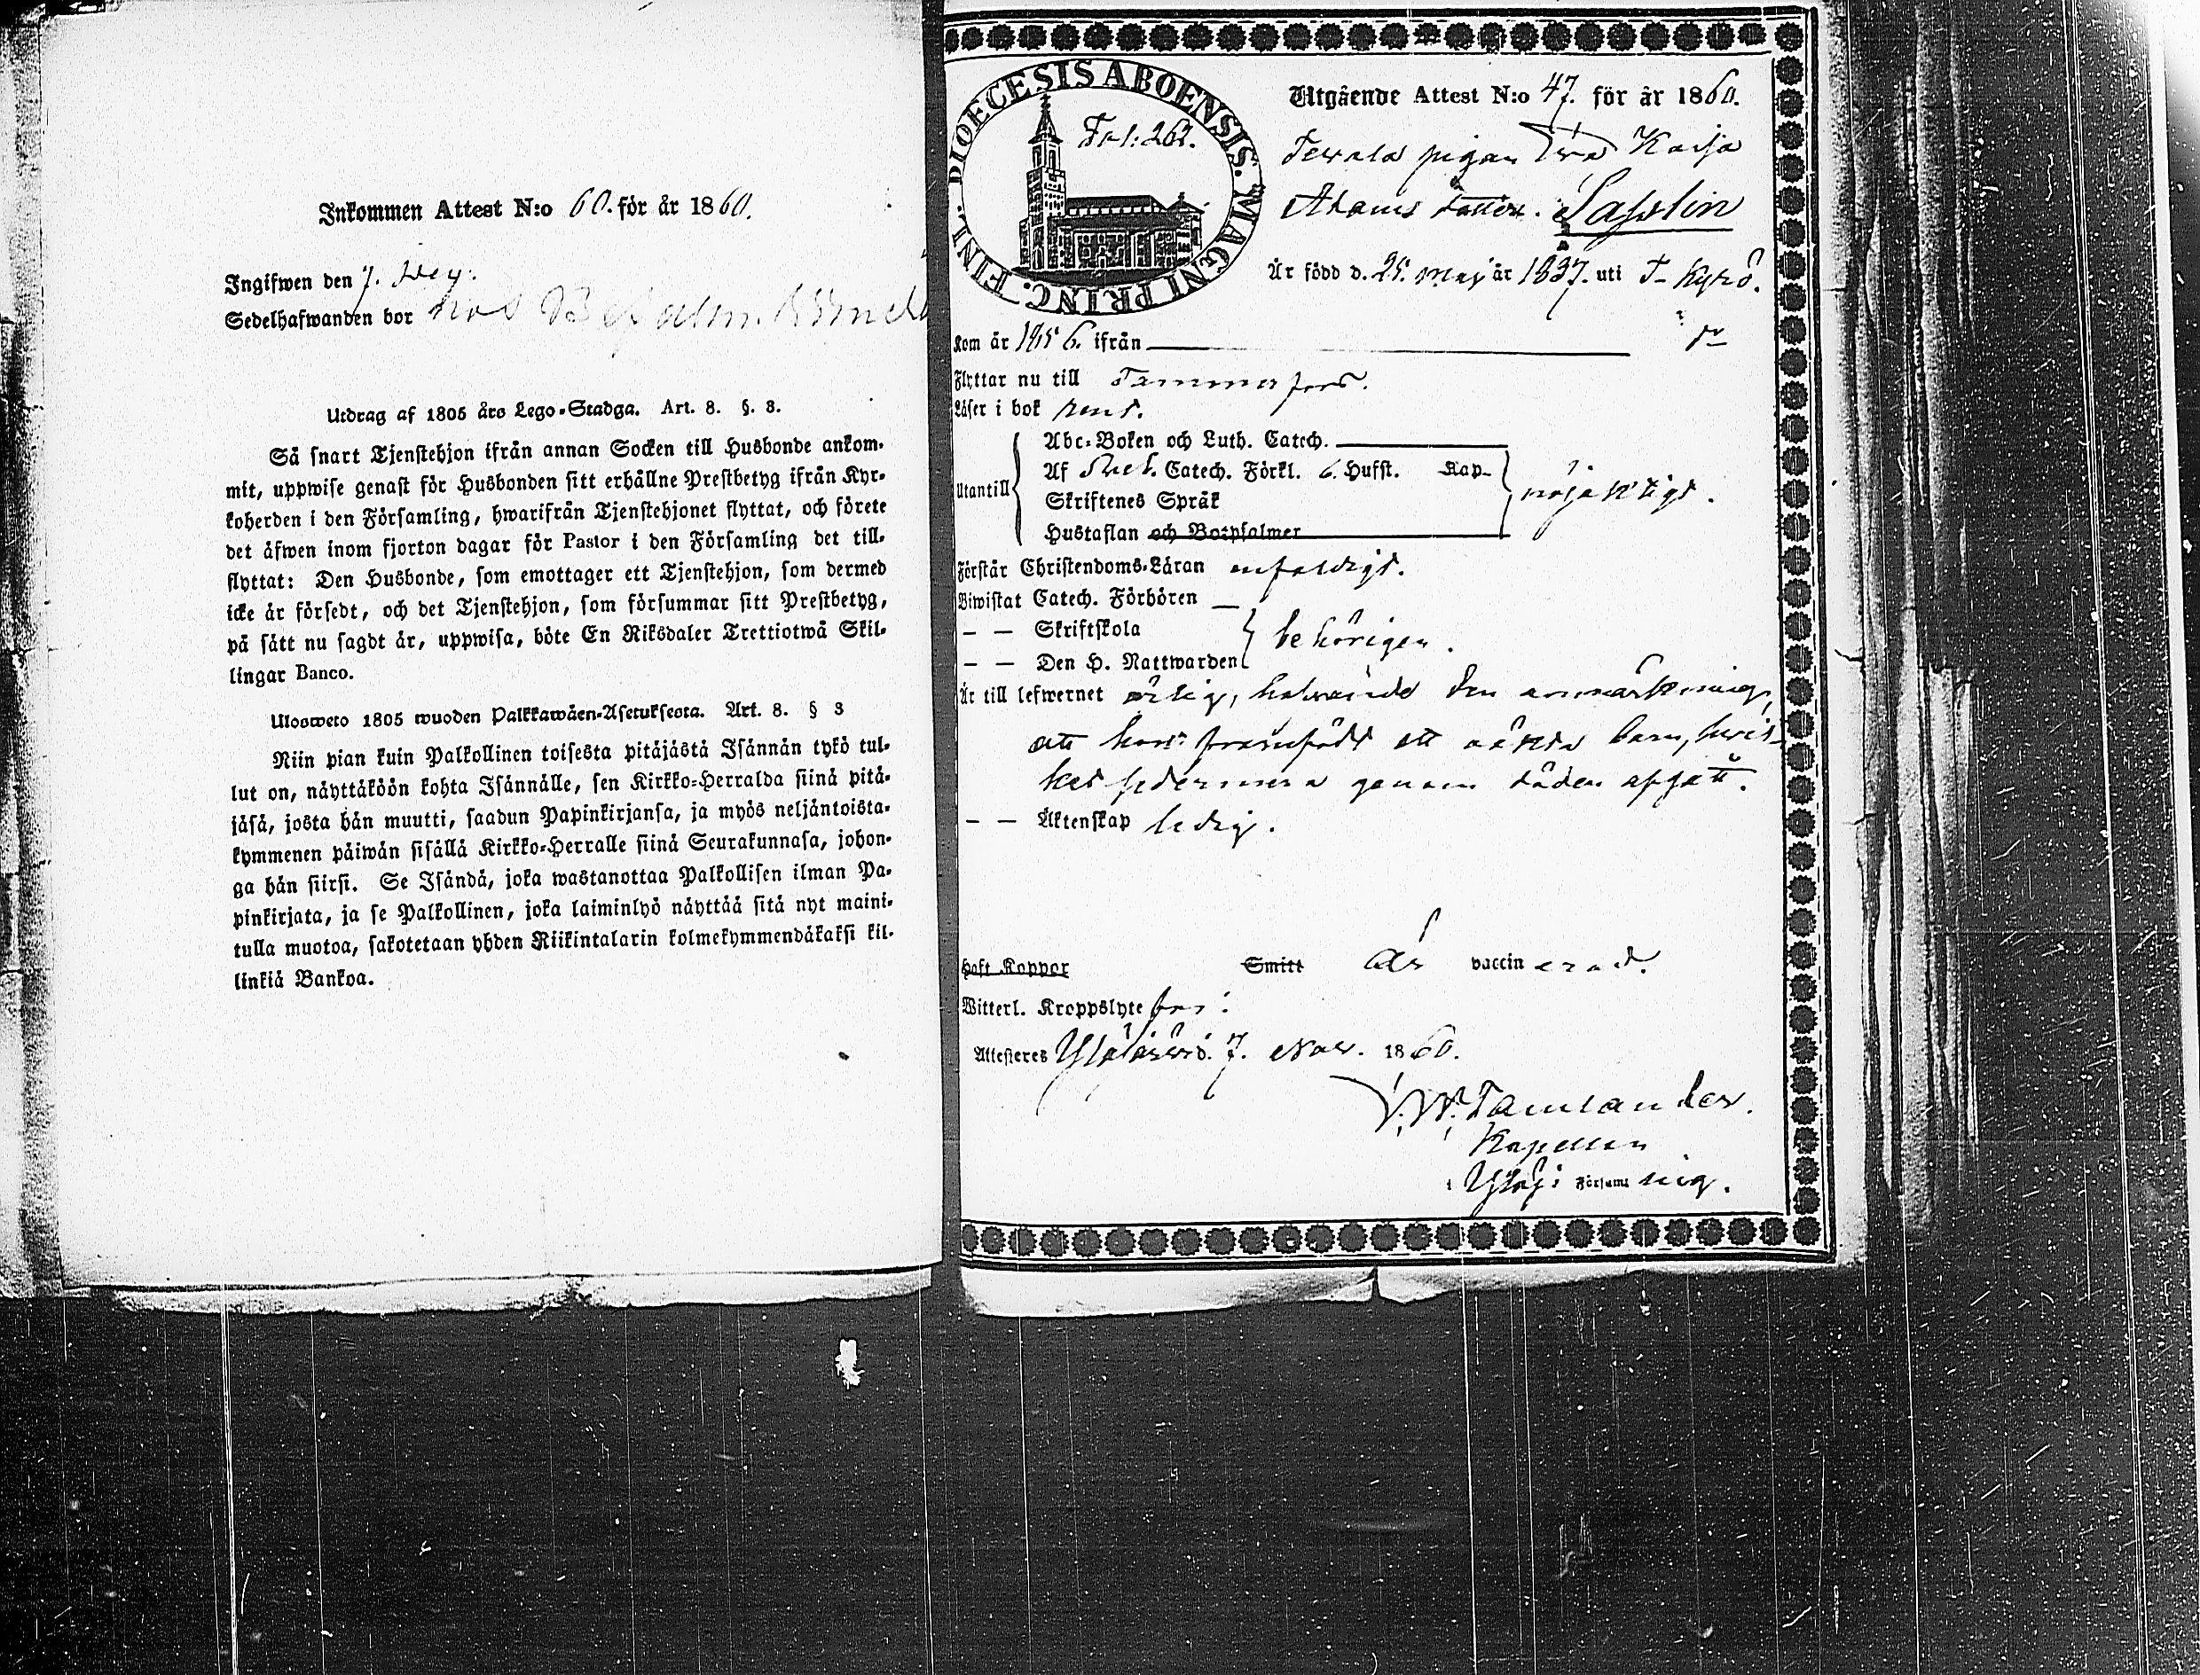 Inkommen Attest N:o 60. för år 1860.
Ingifwen den 7. Dec:
Sedelhafwanden bor hos
Utdrag af 1805 års Lego-Stadga. Art. 8. §. 3.
Så snart Tjenstehjon ifrån annan Socken till Husbonde ankom-
mit, uppwise genast för Husbonden sitt erhållne Prestbetyg ifrån Kyr-
koherden i den Församling, hwarifrån Tjenstehjonet flyttat, och förete
det äfwen inom fjorton dagar för Pastor i den Församling det till-
flyttat: Den Husbonde, som emottager ett Tjenstehjon, som dermed
icke är försedt, och det Tjenstehjon, som försummar sitt Prestbetyg,
på sätt nu sagdt är, uppwisa, böte En Riksdaler Trettiotwå Skil-
lingar Banco.
Uloosweto 1805 wuoden Palkkawäen-Asetuksesta. Art. 8. § 3
Niin pian kuin Palkollinen toisesta pitäjästä Isännän tykö tul-
lut on, näyttäköön kohta Isännälle, sen Kirkko-Herralda siinä pitä-
jäsä, josta hän muutti, saadun Papinkirjansa, ja myös neljäntoista-
kymmenen päiwän sisällä Kirkko-Herralle siinä Seurakunnasa, johon-
ga hän siirsi. Se Isändä, joka wastanottaa Palkollisen ilman Pa-
pinkirjata, ja se Palkollinen, joka laiminlyö näyttää sitä nyt maini-
tulla muotoa, sakotetaan yhden Riikintalarin kolmekymmendäkaksi kil-
linkiä Bankoa.
DIOECESIS ABOENSIS. MAGNI PRINC. FINL.
Fol: 262.
Utgående Attest N:o 47. för år 1860.
pigan Eva Kaisa
Adams dotter. Sasslin
Är född d. 25. Maj år 1837. uti T-Kyrö.
Kom år 1856. ifrån do
Flyttar nu till Tammerfors.
Läser i bok rent.
Utantill
Abc-Boken och Luth. Catech.
Af Sveb. Catech. Förkl. 6. Hufst. Kap.
Skriftenes Språk
Hustaflan och Botpsalmer
nöjaktigt.
Förstår Christendoms-Läran enfaldigt.
Biwistat Catech. Förhören
— — Skriftskola
— — Den H. Nattwarden
behörigen.
Är till lefwernet ärlig, hafvande den anmärkning,
att hon framfödt ett oäkta barn, hvil-
ket sedermera genom döden afgått.
— — Äktenskap ledig.
Haft Koppor Smitt är vaccinerad.
Witterl. Kroppslyte fri:
Attesteras Ylöjärvi d. 7. Nov. 1860.
Tamlander.
Kapellan
i Ylöj: Församling.